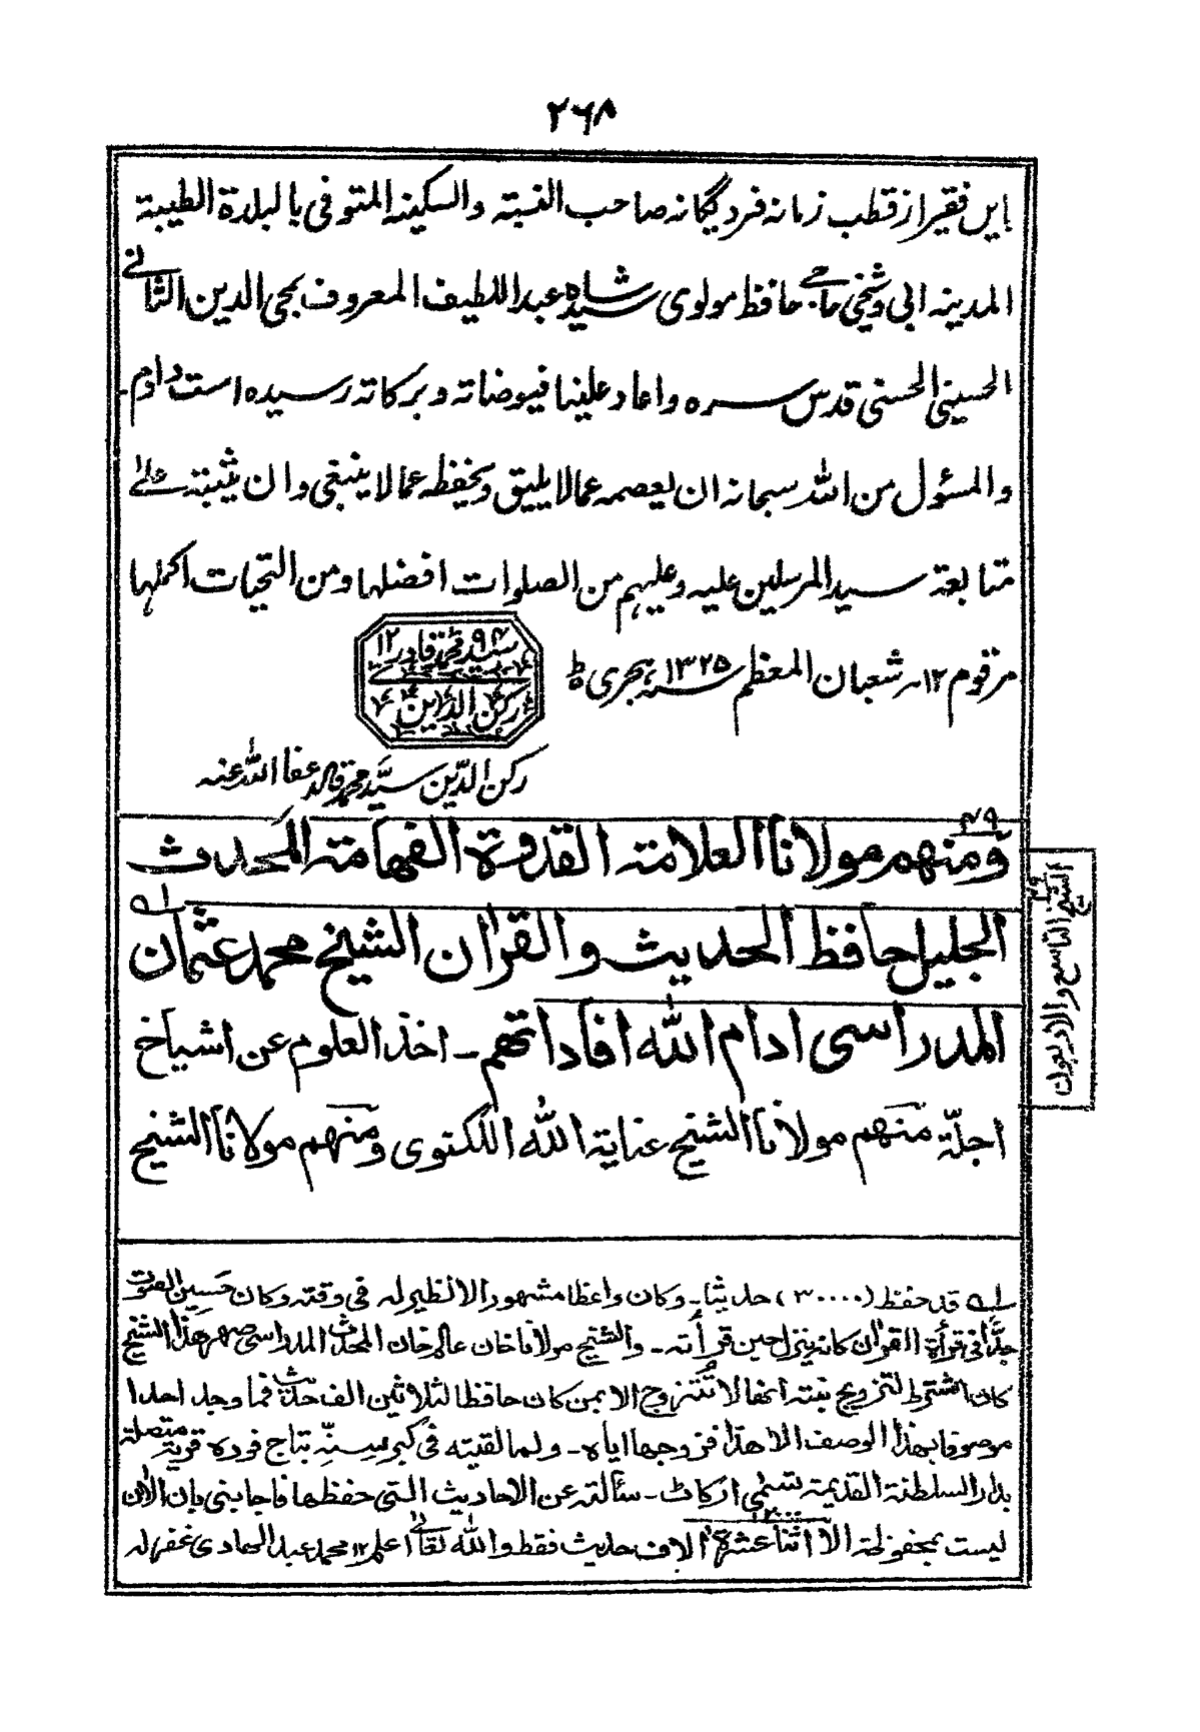 ۲۶۸
بایں فقیر از قطب زمانہ فرد یگانہ صاحب النسبتہ والسکینہ المتوفی بالبلدۃ الطیبۃ
المدینہ ابی وشیخی حاجی حافظ مولوی سید شاہ عبد اللطیف المعروف بمحی الدین الثانی
الحسینی الحسنی قدس سرہ واعاد علینا فیوضاتہ وبرکاتہ رسیدہ است دادم۔
والمسئول من اللہ سبحانہ ان یعصمہ عمالا یلیق ویحفظہ عمالا ینبغی وان یثبتہ علی
متابعۃ سید المرسلین علیہ وعلیہم من الصلوات افضلہا ومن التحیات اکملہا
مرقوم ۱۲؍ شعبان المعظم سنہ ۱۳۲۵ ہجری
سید محمد قادر ۱۲۹۴
رکن الدین
رکن الدّین سیّد محمد قادر عفا اللہ عنہ
۴۹
ومنهم مولانا العلامة القدوة الفهامة المحدث
الجليل حافظ الحديث والقرآن الشيخ محمد عثمان ۱ه
المدراسى ادام الله افاداتهم ـ اخذ العلوم عن اشياخ
اجلّة منهم مولانا الشيخ عناية الله اللكنوى ومنهم مولانا الشيخ
الشيخ التاسع والاربعون
۴۹
۱ه قد حفظ (۳۰۰۰۰) حديثا ـ وكان واعظا مشهورا لا نظير له فى وقته وكان حسين الصوت
جدّا فى قرأة القرآن كانه ينزل حين قرأته ـ والشيخ مولانا خان عالم خان المحدث المدراسى صهر هذا الشيخ
كان اشترط لتزويج بنته انها لا تُتزوج الا بمن كان حافظا لثلاثين الف حديث فما وجد احدا
موصوفا بهذا الوصف الا هذا فزوجها اياه ـ ولما لقيته فى كبر سنّه بتاج فوره قرية متصلة
بدار السلطنة القديمة تسمى اركاٹ ـ سألته عن الاحاديث التى حفظها فاجابنى بان الآن
ليست بمحفوظة الا اثنا عشرة ۱۲۰۰۰ آلاف حديث فقط والله تعالى اعلم ۱۲ محمد عبد الهادى غفر له